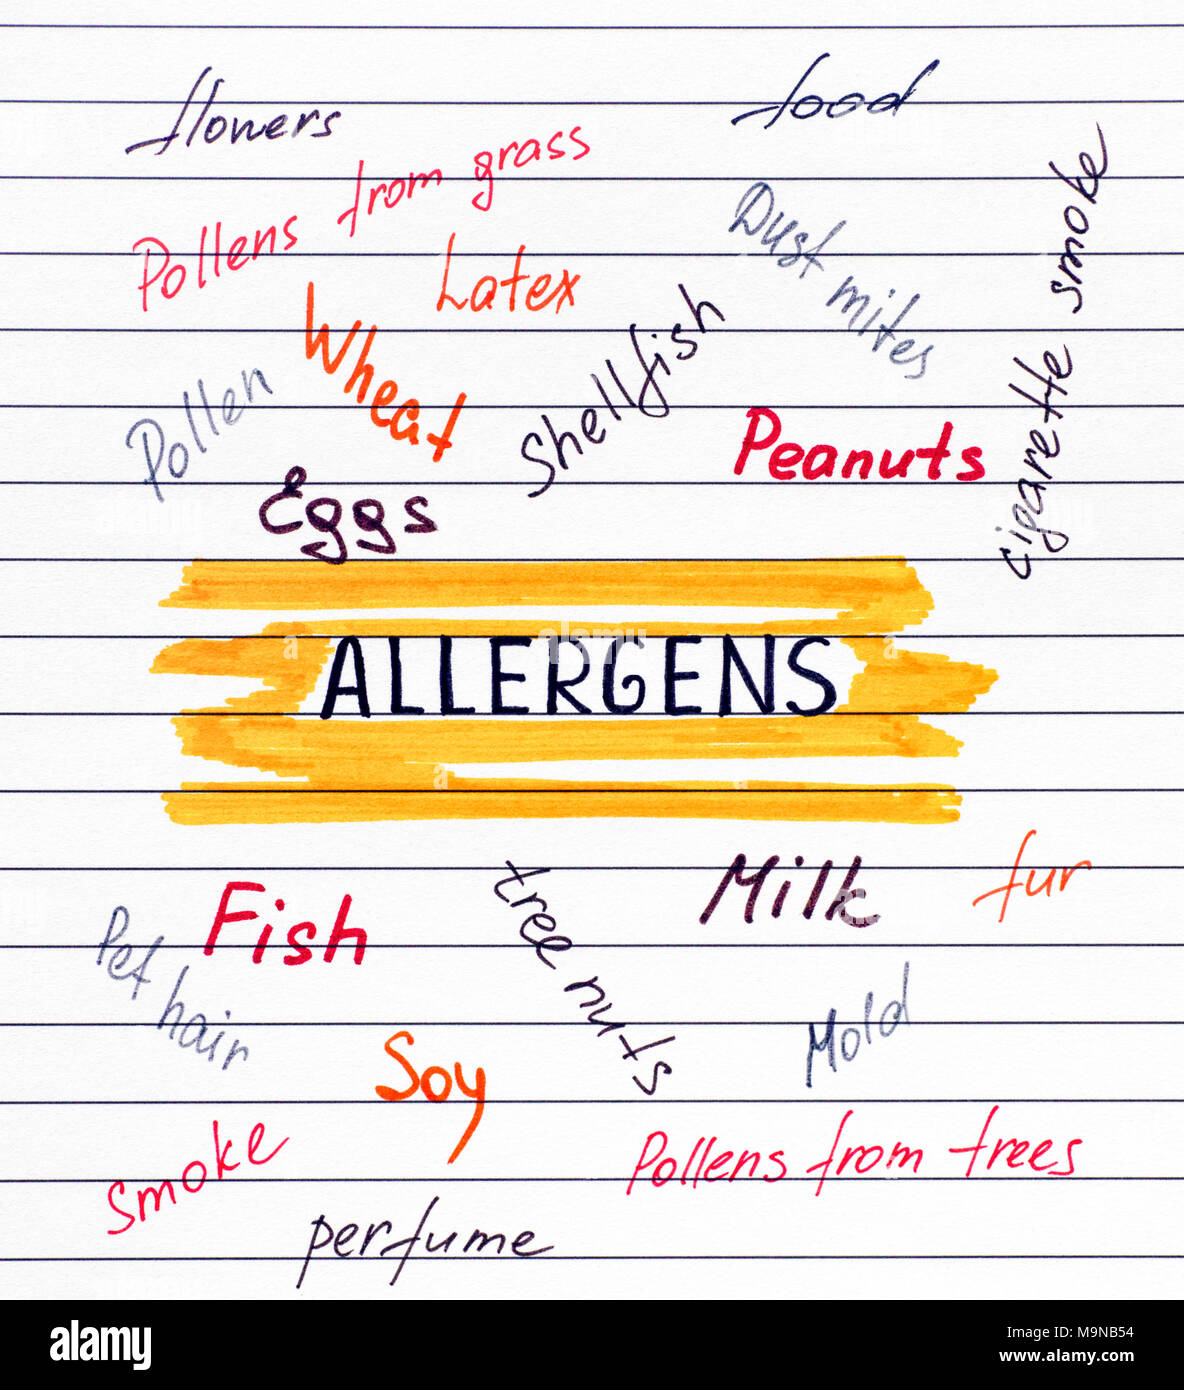 flowers
food
Pollens from grass
cigarette smoke
Dust mites
Latex
Wheat
Shellfish
Pollen
Peanuts
Eggs
ALLERGENS
alamy
a
a
a
Milk
fur
tree nuts
Fish
Pet hair
Mold
Soy
Smoke
Pollens from trees
perfume
alamy
Image ID: M9NB54
www.alamy.com